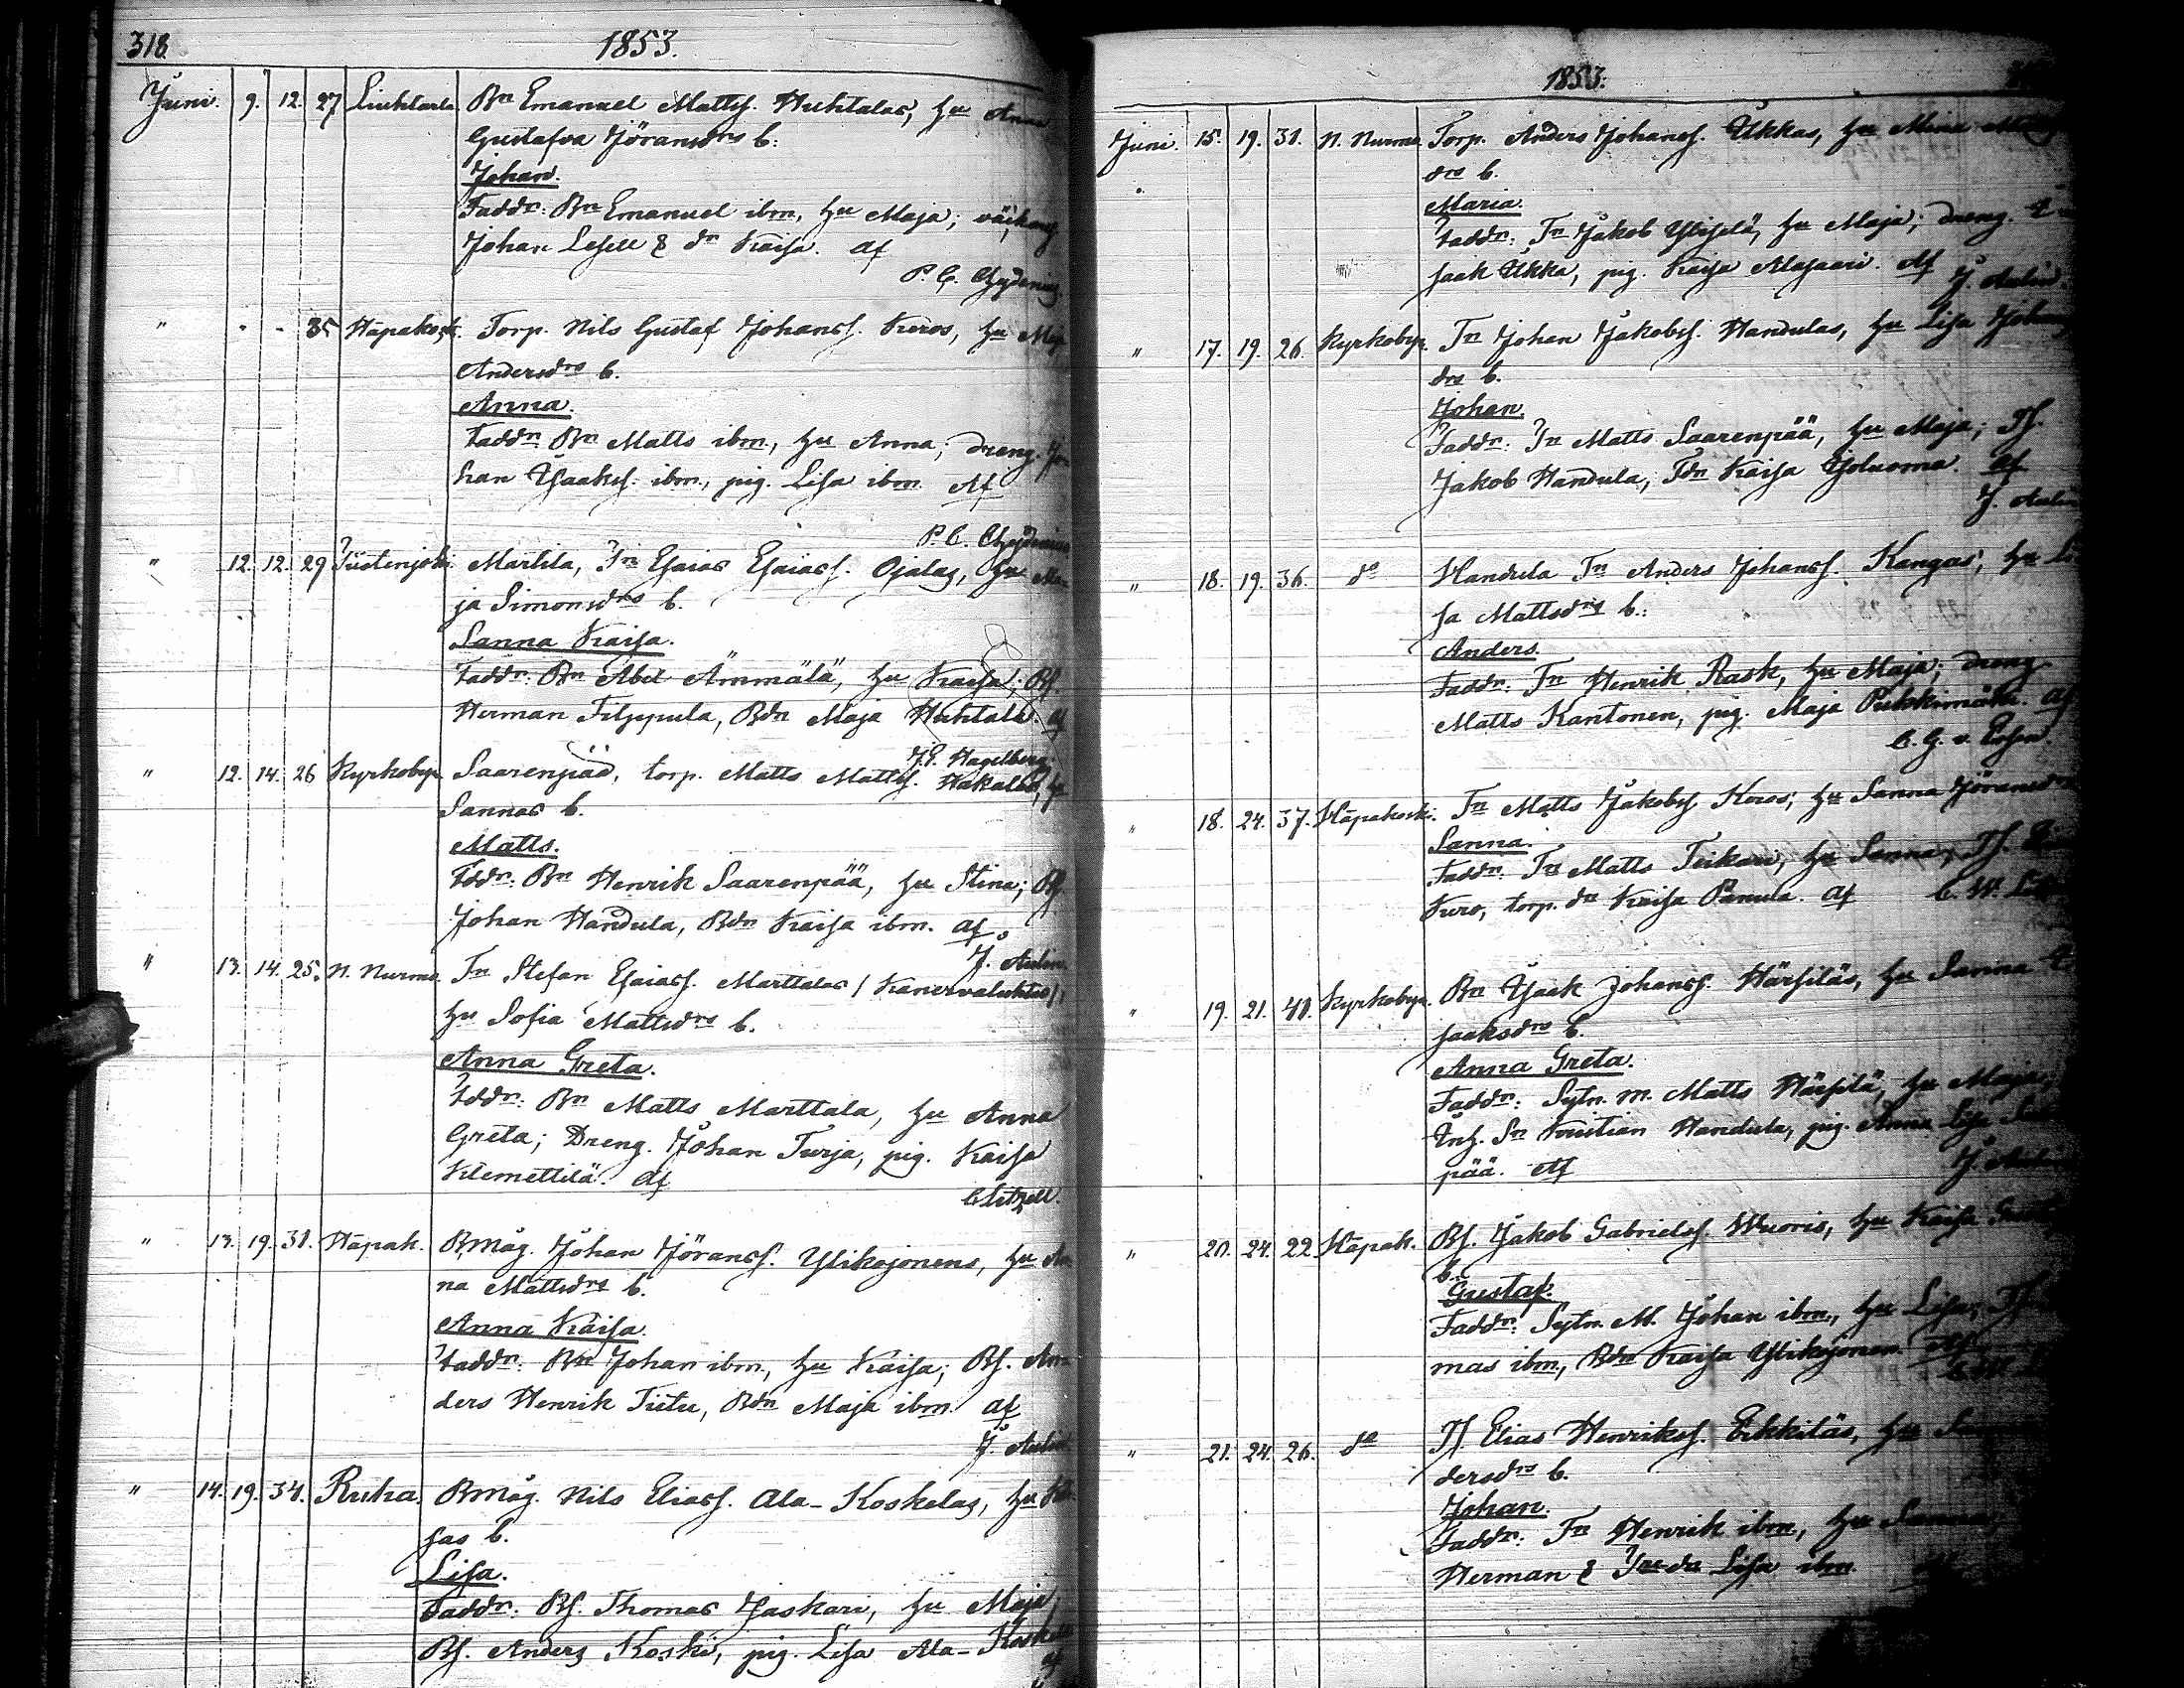 318. 1853.
Juni. 9. 12. 27 Liuhtarla Bn Emanuel Mattss. Huhtalas, hu Anna
Gustafva Jöransdrs b.
Johan.
Faddr: Bn Emanuel ibm, hu Maja;
Johan Lesell & dr Kaisa. Af
P. C. Chydenius.
" - - 35 Hapakosk. Torp. Nils Gustaf Johanss. Keros, hu Maja
Andersdrs b.
Anna.
Faddr: Bn Matts ibm, hu Anna; dreng. Jo-
han Isaakss. ibm, pig. Lisa ibm Af
P. C. Chydenius
" 12. 12. 29 Tiistenjoki Marttila, Tn Esaias Esaiass. Ojalas, hu Ma-
ja Simonsdrs b.
Sanna Kaisa.
Faddr: Bn Abel Ämmälä, hu Kaisa; Bs.
Herman Filppula, Bdn Maja Huhtala. af
J. E. Hagelberg.
" 12. 14. 26 Kyrkobyn Saarenpää, torp. Matts Mattss. Hakalas, hu
Sannas b.
Matts.
Fddr: Bn Henrik Saarenpää, hu Stina; Bs.
Johan Handula, Bdn Kaisa ibm. af
J. Aulin.
" 13. 14. 25. N. Nurmo. Tn Stefan Esaiass. Marttalas / Kanervaluhtas /,
hu Sofia Mattsdrs b.
Anna Greta.
Fddr: Bn Matts Marttala, hu Anna
Greta; Dreng. Johan Turja, pig. Kaisa
Klemettilä. Af
C Litzell.
" 13. 19. 31. Hapak. Bmåg. Johan Jöranss. Ylikojonens, hu An-
na Mattsdrs b.
Anna Kaisa.
Faddr: Bn Johan ibm, hu Kaisa; Bs. An-
ders Henrik Tiitu, Bdn Maja ibm af
J. Aulin
" 14. 19. 34. Ruha. Bmåg. Nils Eliass. Ala-Koskelas, hu
sas b.
Lisa.
Faddr: Bs. Thomas Jaskari, hu Maja,
Bs. Anders Koski, pig. Lisa Ala-Koskela
af
1853.
Juni. 15. 19. 31. N. Nurmo. Torp. Anders Johanss. Ukkas, hu Mina
drs b.
Maria.
Faddr: Tn Jakob Yliselä, hu Maja; dreng. I-
saak Ukka, pig. Kaisa Alasaari. Af J. Aulin.
" 17. 19. 26. Kyrkobyn. Tn Johan Jakobss. Handulas, hu Lisa Johans-
drs b.
Johan.
Faddr: Tn Matts Saarenpää, hu Maja; Ts.
Jakob Handula, Tdn Kaisa Yjoluoma. af
J. Aulin
" 18. 19. 36. do Handula Tn Anders Johanss. Kangas, hu Li-
sa Mattsdrs b.
Anders.
Faddr: Tn Henrik Rask, hu Maja; dreng
Matts Kantonen, pig. Maja Pukkimäki. af
C. G. v. Essen.
" 18. 24. 37. Hapakoski. Tn Matts Jakobss Keros; hu Sanna Jöransdrs
Sanna.
Faddr. Tn Matts Teikari, hu Sanna; Ts.
Kero, torp. dr Kaisa Panula. af
" 19. 21. 41. Kyrkobyn. Bn Isaak Johanss. Härsiläs, hu Sanna I-
saaksdrs b.
Anna Greta.
Faddr: Sytn. m. Matts Härsilä, hu Maja;
Inh. Sn Kristian Handula, pig. Anna Lisa
pää. Af J. Aulin
" 20. 24. 22 Hapak. Bs. Jakob Gabrielss. Wuoris, hu Kaisa
b.
Gustaf.
Faddr: Sytn. M. Johan ibm, hu Lisa; Ts.
mas ibm, Bdn Kaisa Ylikojonen. Af
" 21. 24. 26. do Ts Elias Henrikss. Erkkiläs, hu
dersdrs b.
Johan.
Faddr: Tn Henrik ibm, hu Sanna,
Herman & Lisa ibm.